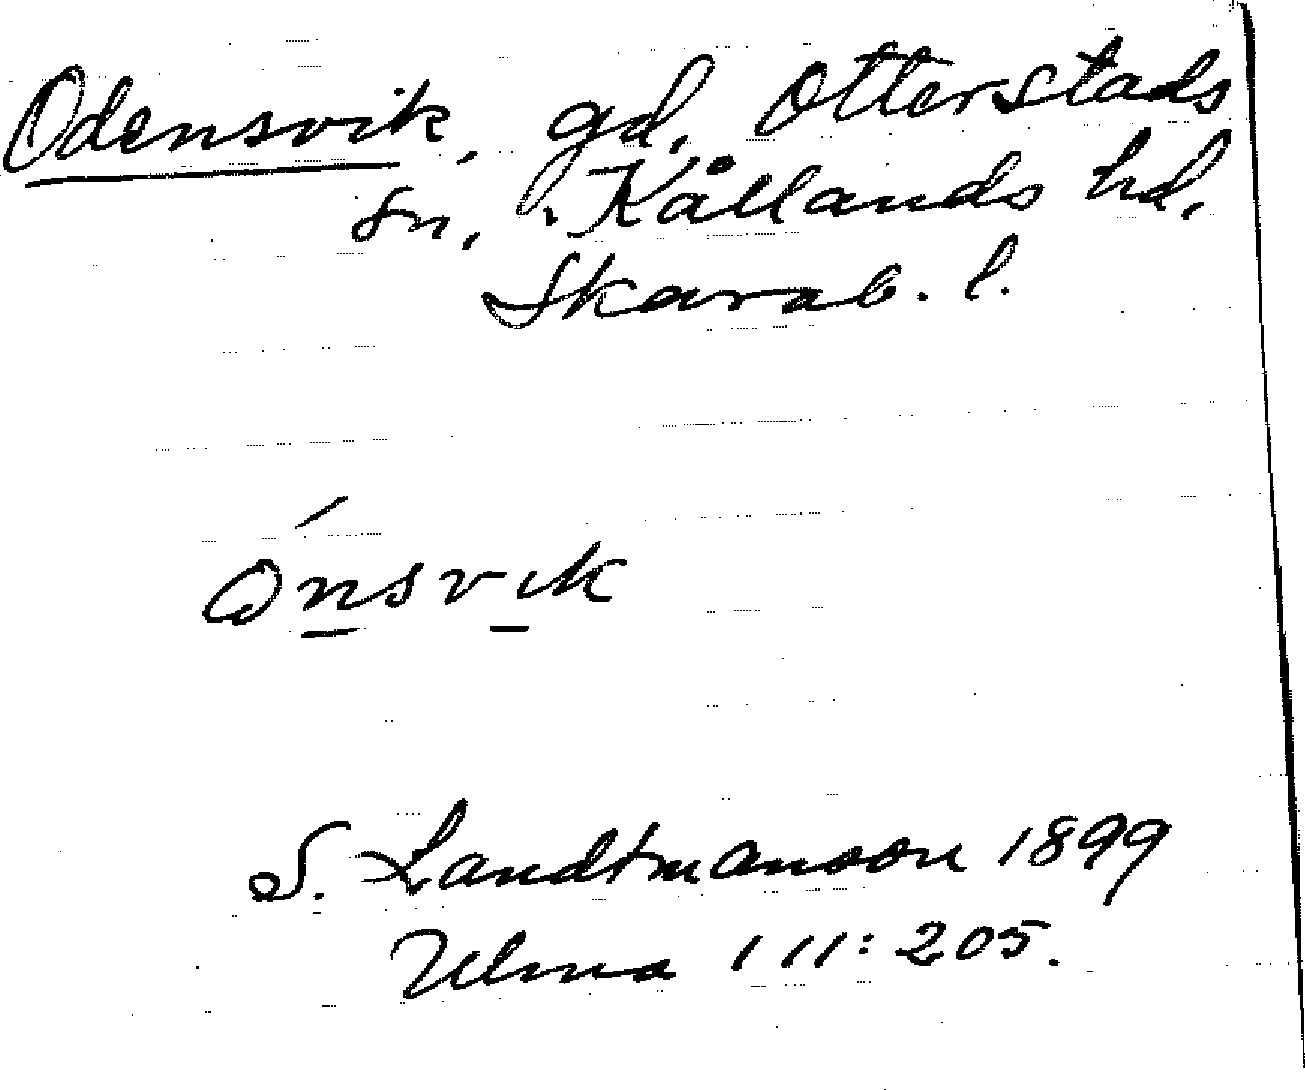 Odensvik, gd, Otterstads
sn, Kållands hd,
Skarab. l.
Ónsvik
S. Landtmanson 1899
Ulma 111:205.